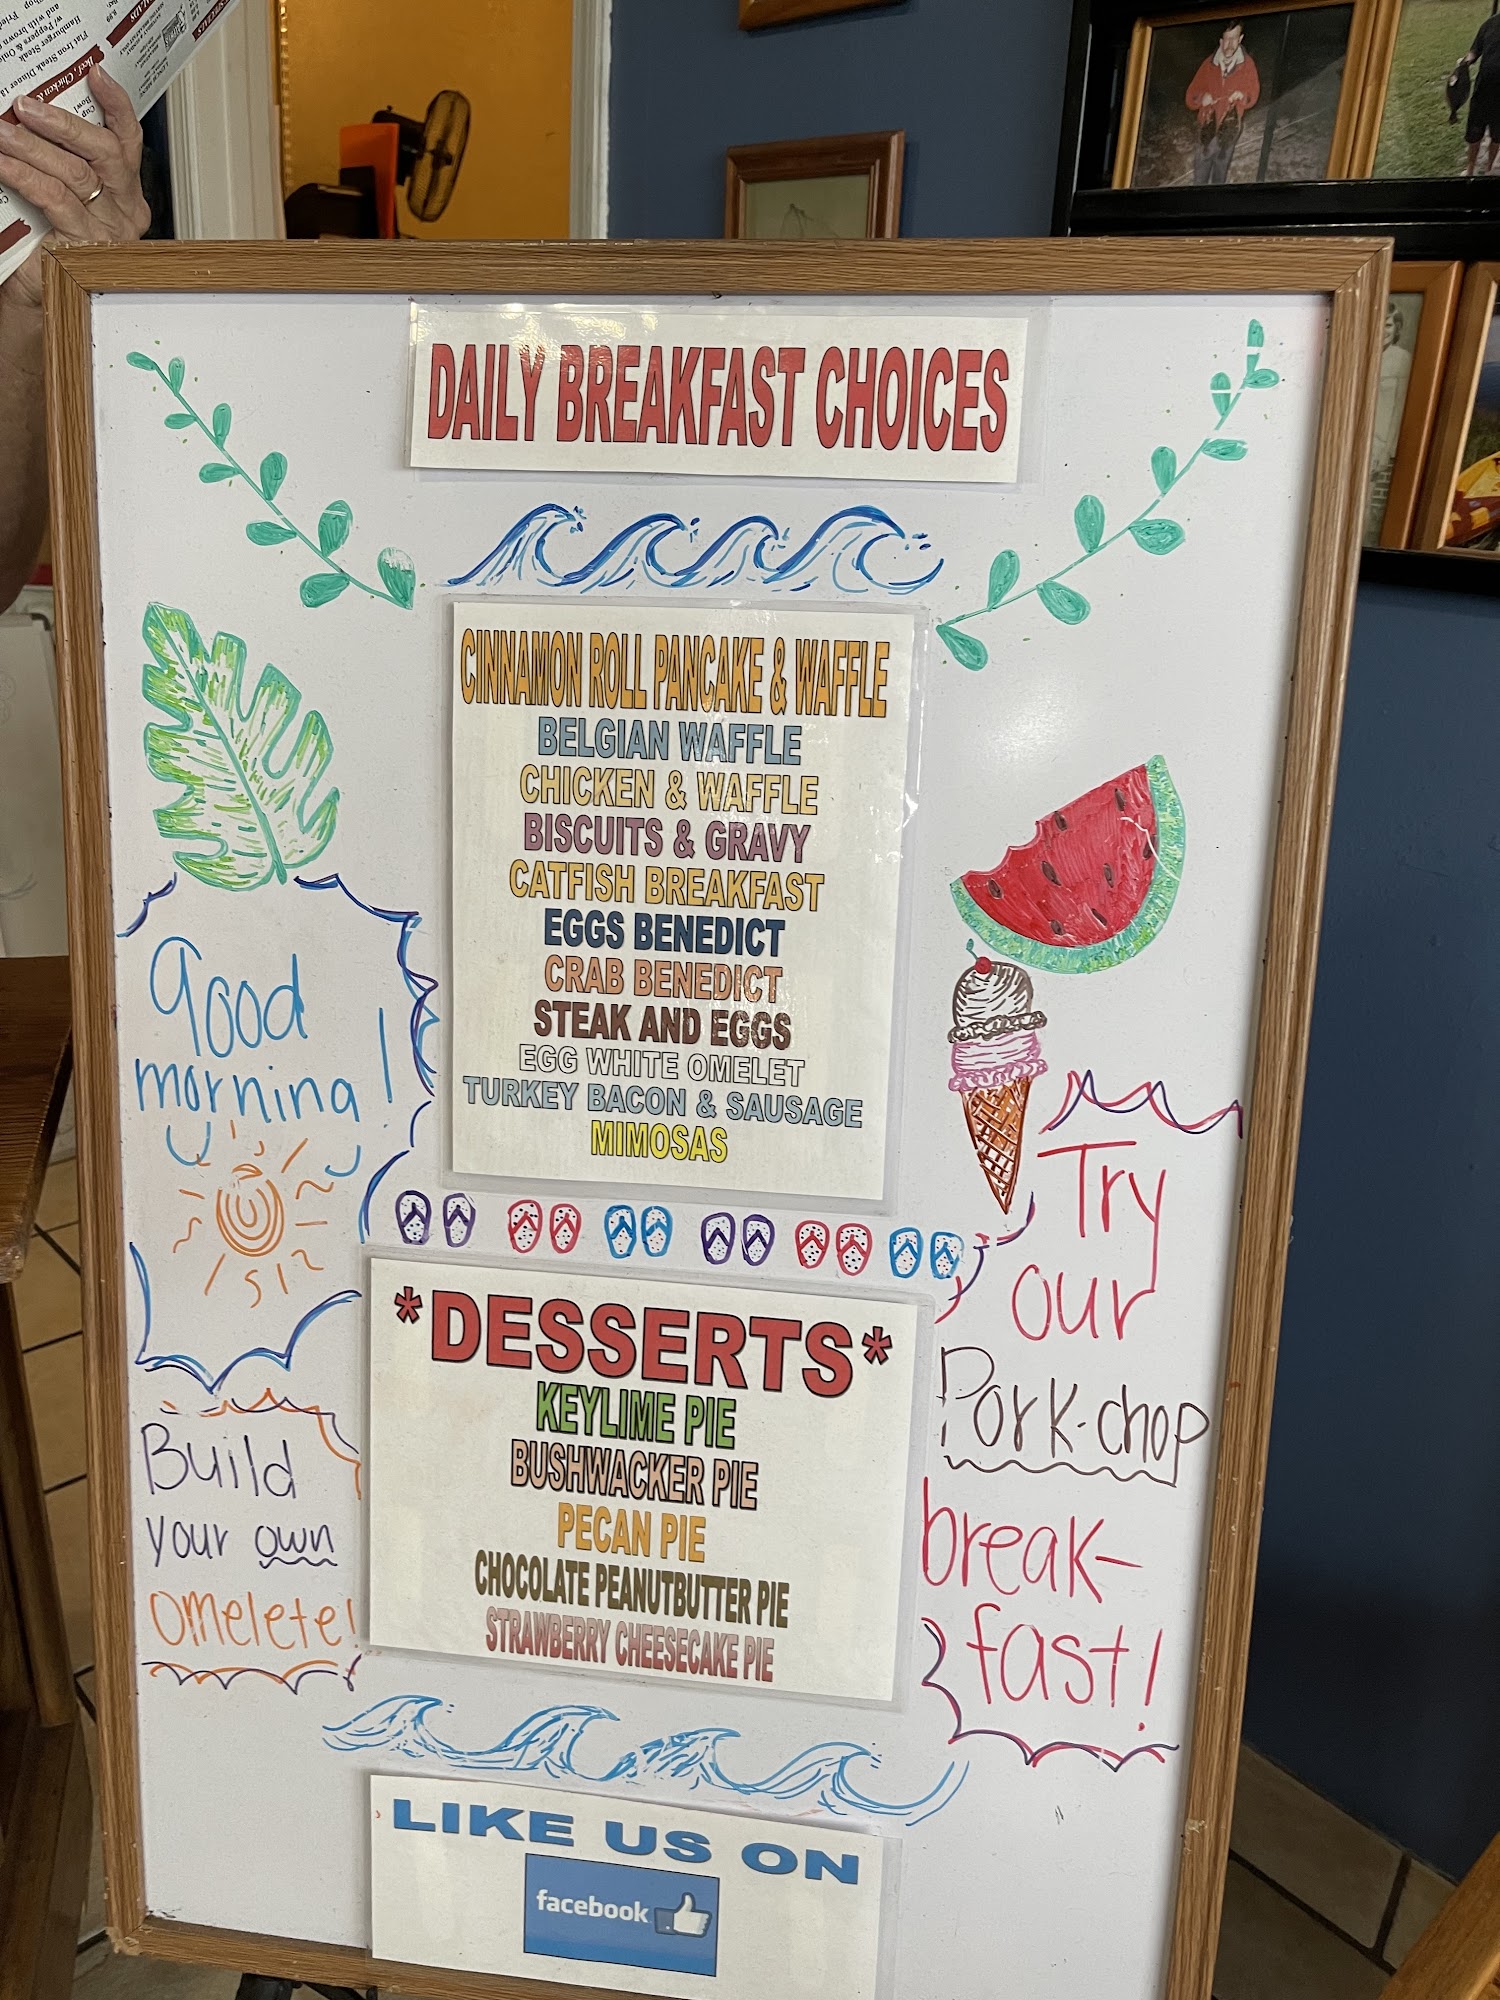 Flat Iron Steak Dinner
Hamburger Steak
w/ Peppers & Onions
Beef, Chicken &
Cup
Bowl
DAILY BREAKFAST CHOICES
CINNAMON ROLL PANCAKE & WAFFLE
BELGIAN WAFFLE
CHICKEN & WAFFLE
BISCUITS & GRAVY
CATFISH BREAKFAST
EGGS BENEDICT
CRAB BENEDICT
STEAK AND EGGS
EGG WHITE OMELET
TURKEY BACON & SAUSAGE
MIMOSAS
Good
morning!
Build
your own
omelete!
*DESSERTS*
KEYLIME PIE
BUSHWACKER PIE
PECAN PIE
CHOCOLATE PEANUTBUTTER PIE
STRAWBERRY CHEESECAKE PIE
Try
our
Pork-chop
break-
fast!
LIKE US ON
facebook